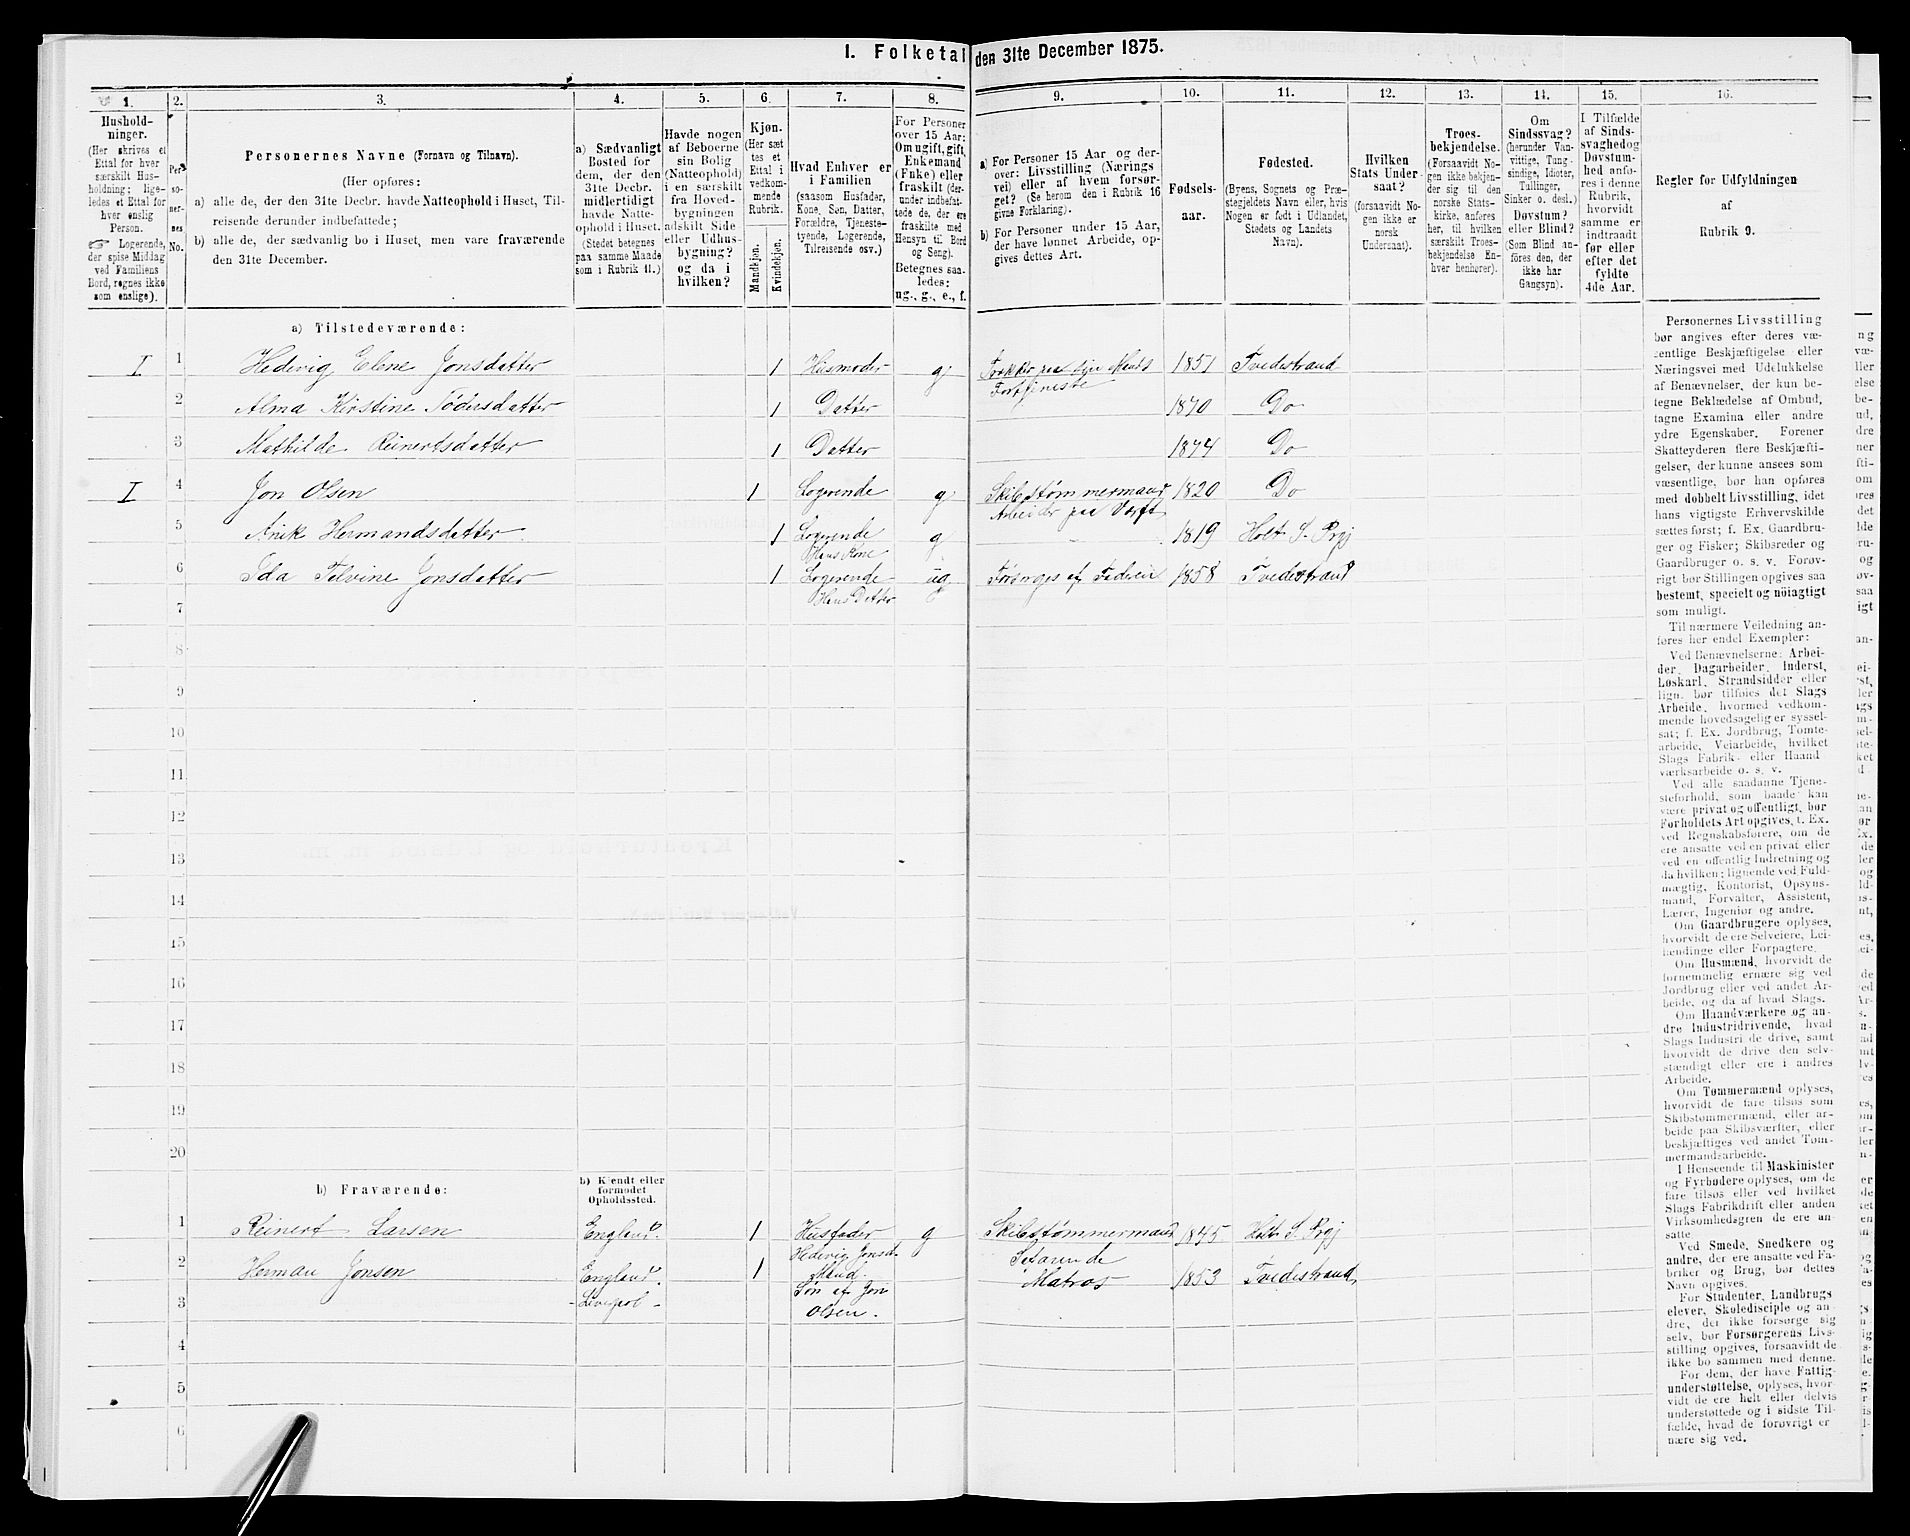 I. Folketal den 31te December 1875.
1. 2. 3. 4. 5. 6. 7. 8. 9. 10. 11. 12. 13. 14. 15. 16.
Hushold-
ninger.
(Her skrives et
Ettal for hver
særskilt Hus-
holdning; lige-
ledes et Ettal for
hver enslig
Person.
☞ Logerende,
der spise Middag
ved Familiens
Bord, regnes ikke
som enslige).
Per-
so-
ner-
nes
No.
Personernes Navne (Fornavn og Tilnavn).
(Her opføres:
a) alle de, der den 31te Decbr. havde Natteophold i Huset, Til-
reisende derunder indbefattede;
b) alle de, der sædvanlig bo i Huset, men vare fraværende
den 31te December.
a) Sædvanligt
Bosted for
dem, der den
31te Decbr.
midlertidigt
havde Natte-
ophold i Huset.
(Stedet betegnes
paa samme Maade
som i Rubrik 11.)
Havde nogen
af Beboerne
sin Bolig
(Natteophold)
i en særskilt
fra Hoved-
bygningen
adskilt Side
eller Udhus-
bygning?
og da i
hvilken?
Kjøn.
(Her sæt
tes et
Ettal i
vedkom-
mende
Rubrik.
Mandkjøn.
Kvindekjøn.
Hvad Enhver er
i Familien
(saasom Husfader,
Kone, Søn, Datter,
Forældre, Tjeneste-
tyende, Logerende,
Tilreisende osv.)
For Personer
over 15 Aar:
Om ugift, gift,
Enkemand
(Enke) eller
fraskilt (der-
under indbefat-
tede de, der ere
fraskilte med
Hensyn til Bord
og Seng).
Betegnes saa-
ledes:
ug., g., e., f.
a) For Personer 15 Aar og der-
over: Livsstilling (Nærings
vei) eller af hvem forsør-
get? (Se herom den i Rubrik 16
givne Forklaring).
b) For Personer under 15 Aar,
der have lønnet Arbeide, op-
gives dettes Art.
Fødsels-
aar.
Fødested.
(Byens, Sognets og Præ-
stegjeldets Navn eller, hvis
Nogen er født i Udlandet,
Stedets og Landets
Navn).
Hvilken
Stats Under-
saat?
(forsaavidt No-
gen ikke er
norsk
Undersaat).
Troes-
bekjendelse.
(Forsaavidt No-
gen ikke bekjen-
der sig til den
norske Stats-
kirke, anføres
her, til hvilken
særskilt Troes-
bekjendelse En-
hver henhører).
Om
Sindssvag?
(herunder Van-
vittige, Tung-
sindige, Idioter,
Tullinger,
Sinker o. desl.)
Døvstum?
eller Blind?
(Som Blind an-
føres den, der
ikke har
Gangsyn).
I Tilfælde
af Sinds-
svaghed og
Døvstum-
hed anfø-
res i denne
Rubrik,
hvorvidt
samme er
indtraadt
før eller
efter det
fyldte
4de Aar.
Regler for Udfyldningen
af
Rubrik 9.
a) Tilstedeværende:
I 1 Hedevig Elene Jonsdatter 1 Husmoder g 1851 Tvedestrand
2 Alma Kirstine 1 Datter 1870 Do
3 Mathilde Reinertsdatter 1 Datter 1874 Do
I 4 Jon Olsen 1 Logerende g Skibstømmermand 1820 Do
Arbeider paa Værft
5 Anik Hermandsdatter 1 Logerende g 1819 Holt S. Prgj
Hans Kone
6 Ida Telvine Jonsdatter 1 Logerende ug Forsørges af Faderen 1858 Tvedestrand
Hans Datter
7
8
9
10
11
12
13
14
15
16
17
18
19
20
b) Fraværende:
b) Kjendt eller
formodet
Opholdssted.
1 Reinert Larsen England. 1 Husfader g Skibstømmermand 1845 Holt S. Prgj
Hedevig Jonsd.
Mand.
2 Herman Jonsen England. 1 Matros 1853 Tvedestrand
3 - Livepol - Søn af Jon
Olsen.
4
5
6
Personernes Livsstilling
bør angives efter deres væ-
sentlige Beskjæftigelse eller
Næringsvei med Udelukkelse
af Benævnelser, der kun be-
tegne Beklædelse af Ombud,
tagne Examina eller andre
ydre Egenskaber. Forener
Skatteyderen flere Beskjæfti-
gelser, der kunne ansees som
væsentlige, bør han opføres
med dobbelt Livsstilling, idet
hans vigtigste Erhvervskilde
sættes først; f. Ex. Gaardbru-
ger og Fisker; Skibsreder og
Gaardbruger o. s. v. Forøv-
rigt bør Stillingen opgives saa
bestemt, specielt og nöiagtigt
som muligt.
Til nærmere Veiledning an-
føres her endel Exempler:
Ved Benævnelserne: Arbei-
der, Dagarbeider, Inderst,
Løskarl, Strandsidder eller
lign. bør tilføies det Slags
Arbeide, hvormed vedkom-
mende hovedsagelig er syssel-
sat; f. Ex. Jordbrug, Tomte-
arbeide, Veiarbeide, hvilket
Slags Fabrik- eller Haand
værksarbeide o. s. v.
Ved alle saadanne Tjene-
steforhold, som baade kan
være privat og offentligt, bør
Forholdets Art opgives, t. Ex.
ved Regnskabsførere, om de
ere ansatte ved en privat eller
ved en offentlig Indretning og
da hvilken; lignende ved Fuld-
mægtig, Kontorist, Opsyns-
mand, Forvalter, Assistent,
Lærer, Ingeniør og andre.
Om Gaardbrugere oplyses,
hvorvidt de ere Selveiere, Lei-
lændinge eller Forpagtere.
Om Husmænd, hvorvidt de
fornemmelig ernære sig ved
Jordbrug eller ved andet Ar-
beide, og da af hvad Slags.
Om Haandværkere og an-
dre Industridrivende, hvad
Slags Industri de drive, samt
hvorvidt de drive den selv-
stændigt eller ere i andres
Arbeide.
Om Tømmermænd oplyses,
hvorvidt de fare tilsøs som
Skibstømmermænd, eller ar-
beide paa Skibsværfter, eller
beskjæftiges ved andet Tøm-
mermandsarbeide.
I Henseende til Maskinister
og Fyrbødere oplyses, om de
fare tilsøs eller ved hvilket
Slags Fabrikdrift eller anden
Virksomhedsgren de ere an-
satte
Ved Smede, Snedkere og
andre, der ere ansatte ved Fa-
briker og Brug, bør dettes
Navn opgives.
For Studenter, Landbrugs
elever, Skoledisciple og an-
dre, der ikke forsørge sig
selv, bør Forsørgerens Livs-
stilling opgives, forsaavidt de
ikke bo sammen med denne.
For dem, der have Fattig-
understøttelse, oplyses, hvor-
vidt de ere helt eller delvis
understøttede og i sidste Til-
fælde, hvad de forøvrigt er
nære sig ved.